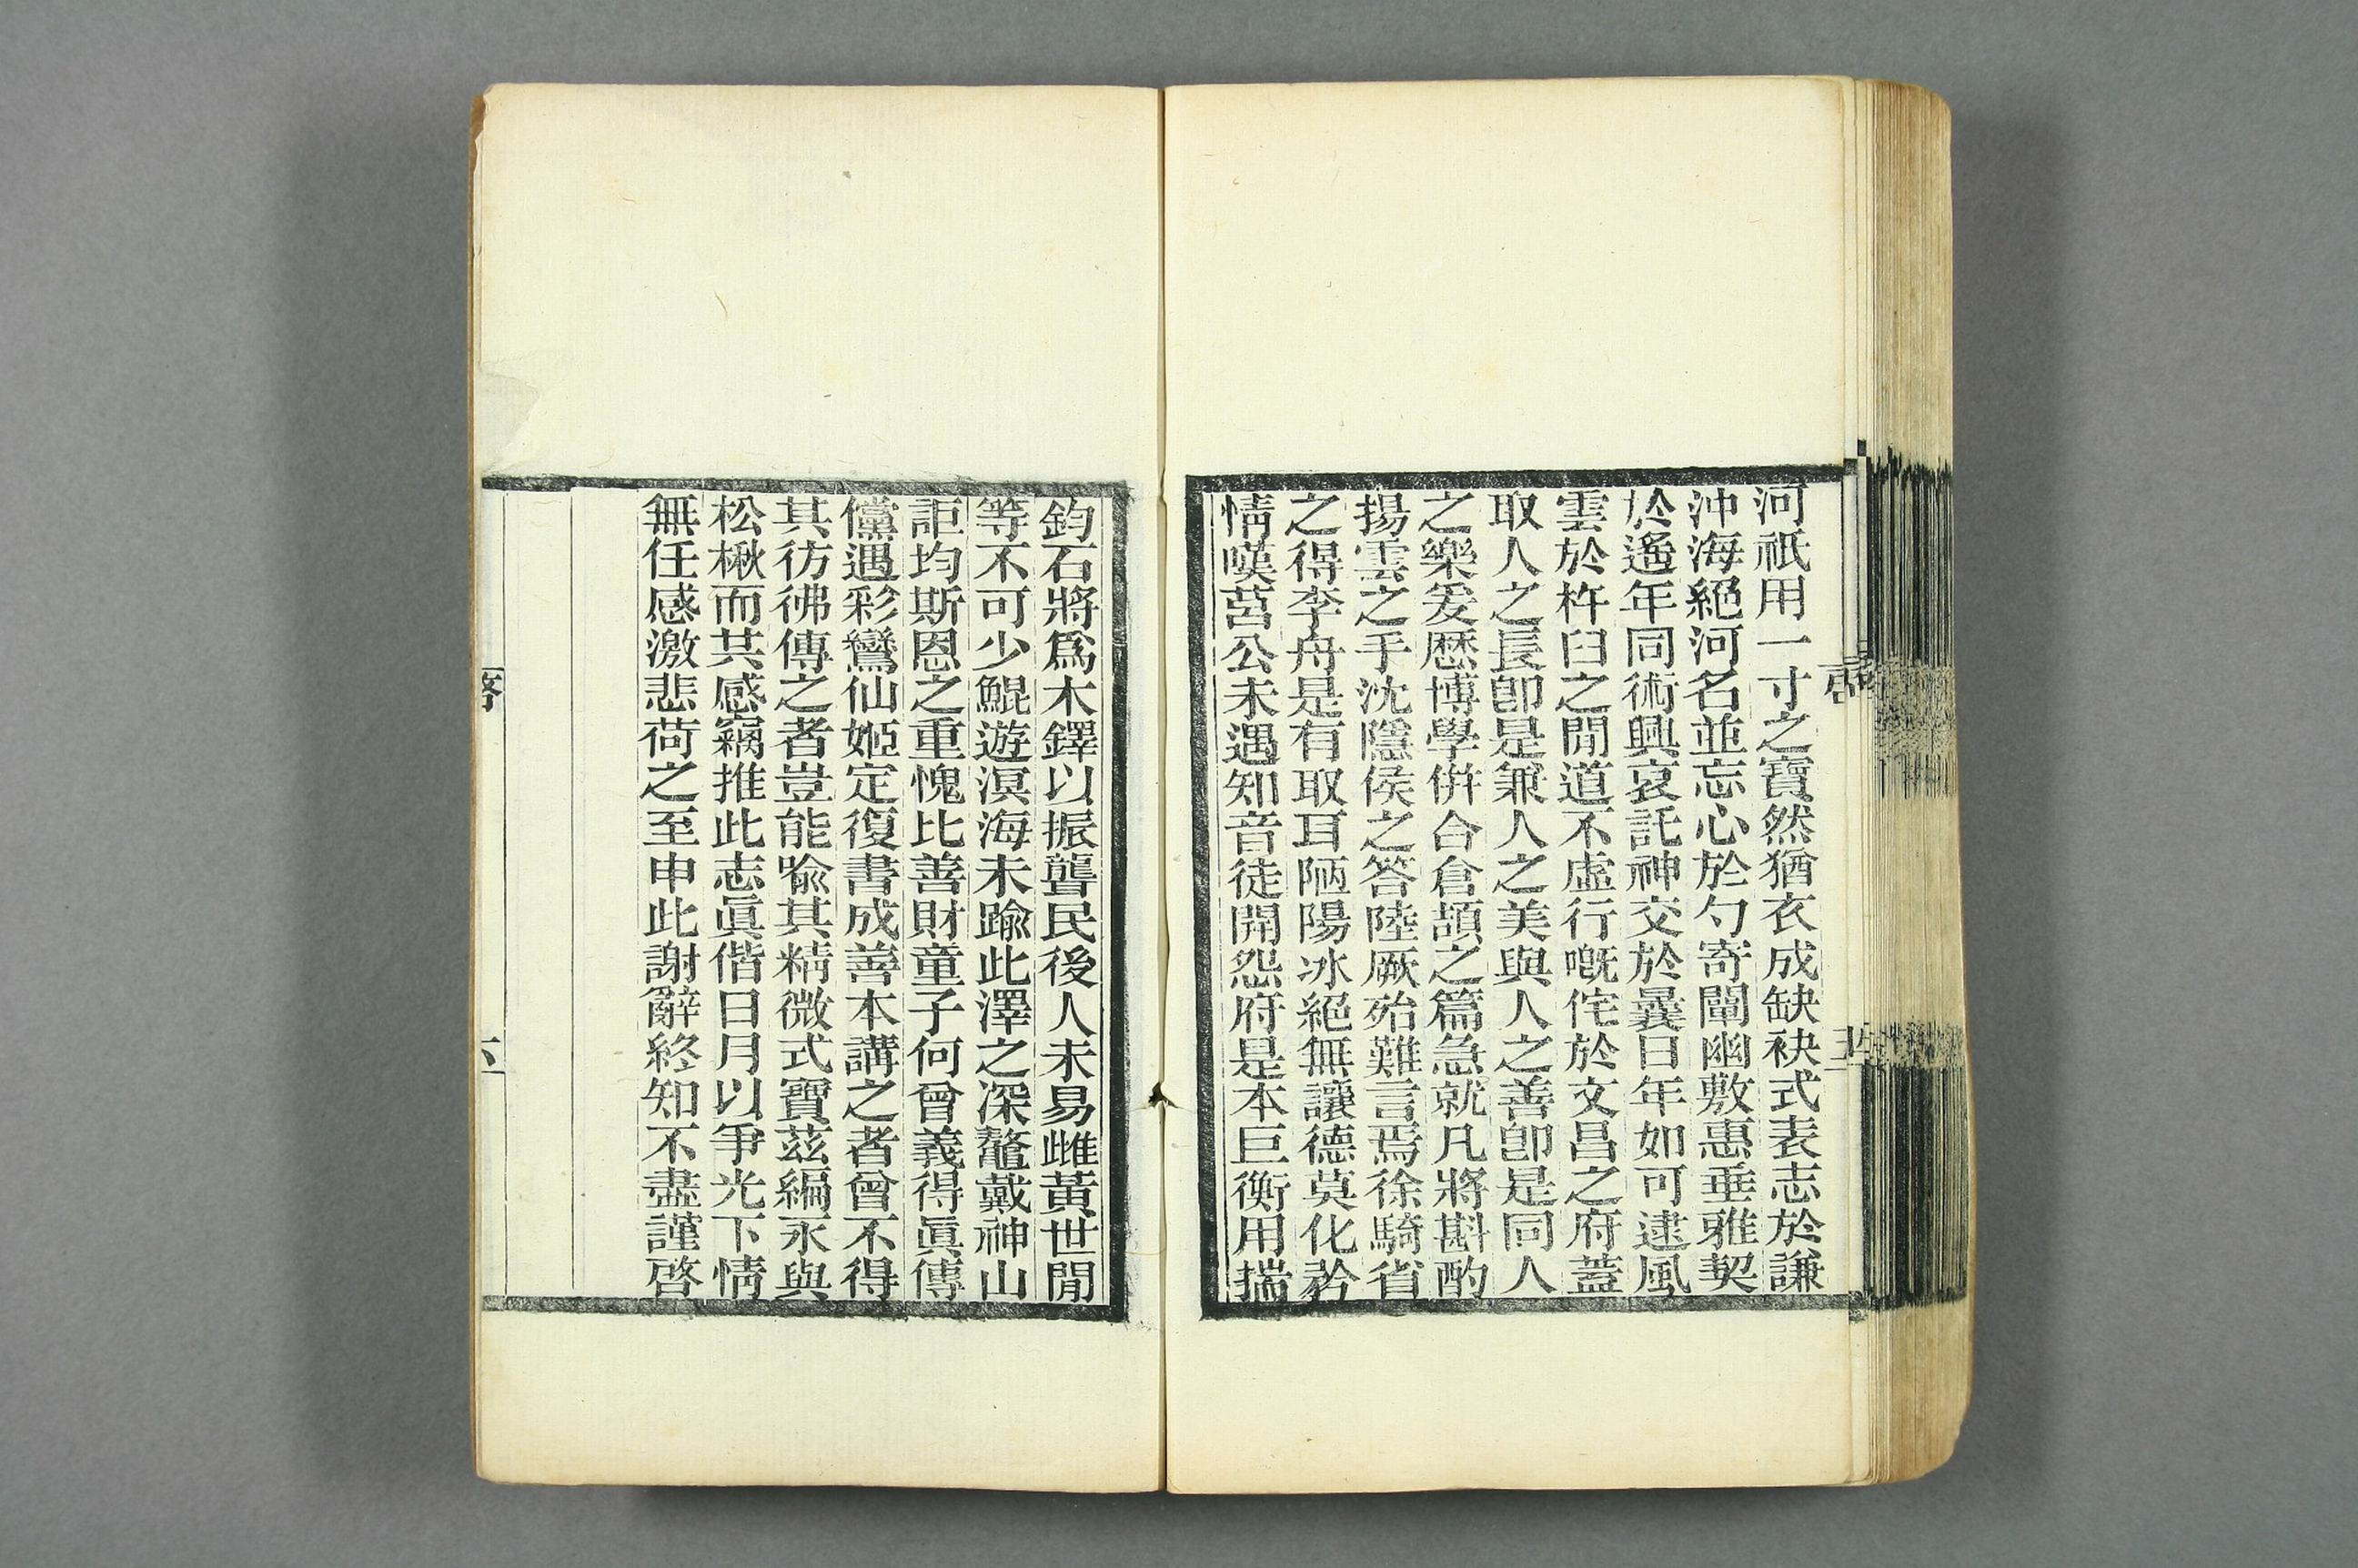 河祇用一寸之寶然猶衣成缺袂式表志於謙
沖海絕河名並忘心於勺寄闡幽敷惠垂雅契
於遙年同術興哀託神交於曩日年如可逮風
雲於杵臼之閒道不虛行嘅侘於文昌之府蓋
取人之長卽是兼人之美與人之善卽是同人
之樂爰歷博學倂合倉頡之篇急就凡將斟酌
揚雲之手沈隱侯之答陸厥殆難言焉徐騎省
之得李舟是有取耳陋陽冰絕無讓德莫化矜
情嘆莒公未遇知音徒開怨府是本巨衡用揣
鈞石將爲木鐸以振聾民後人未易雌黃世閒
等不可少鯤遊溟海未踰此澤之深鼇戴神山
詎均斯恩之重愧比善財童子何曾義得眞傳
儻遇彩鸞仙姬定復書成善本講之者曾不得
其彷彿傳之者豈能喩其精微式寶茲編永與
松楸而共感竊推此志眞偕日月以爭光下情
無任感激悲荷之至申此謝辭終知不盡謹啓
啓
六